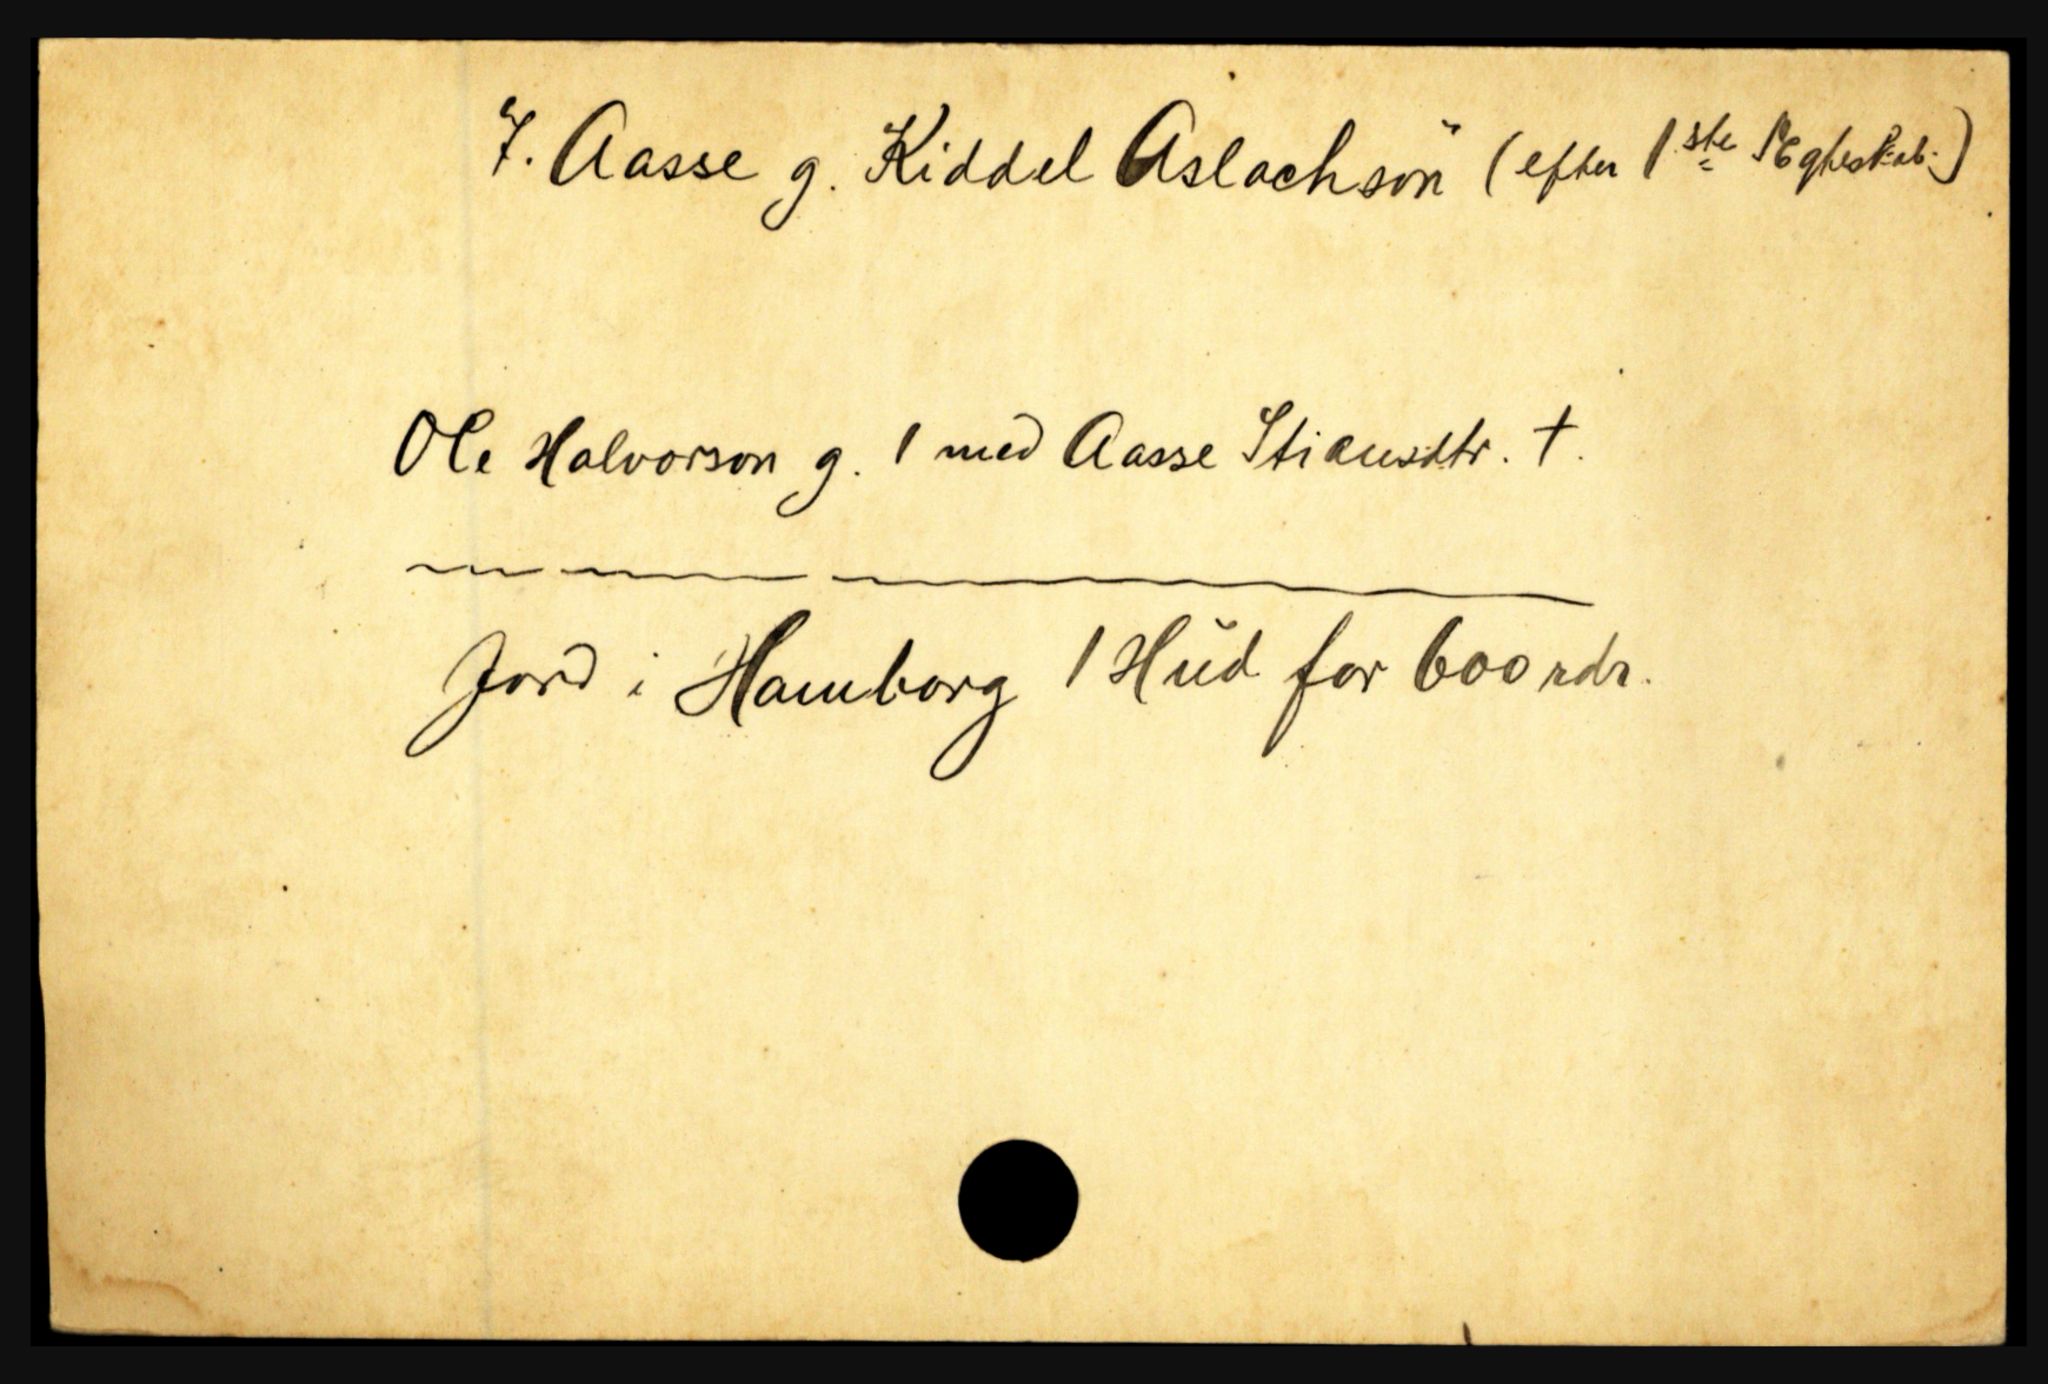 7. Aasse g. Kiddel Aslachsön (efter 1ste Ægteskab.)
Ole Halvorson g. 1 med Aasse Stiansdtr. †.
Jord i Hamborg 1 Hud for 600 rdr.